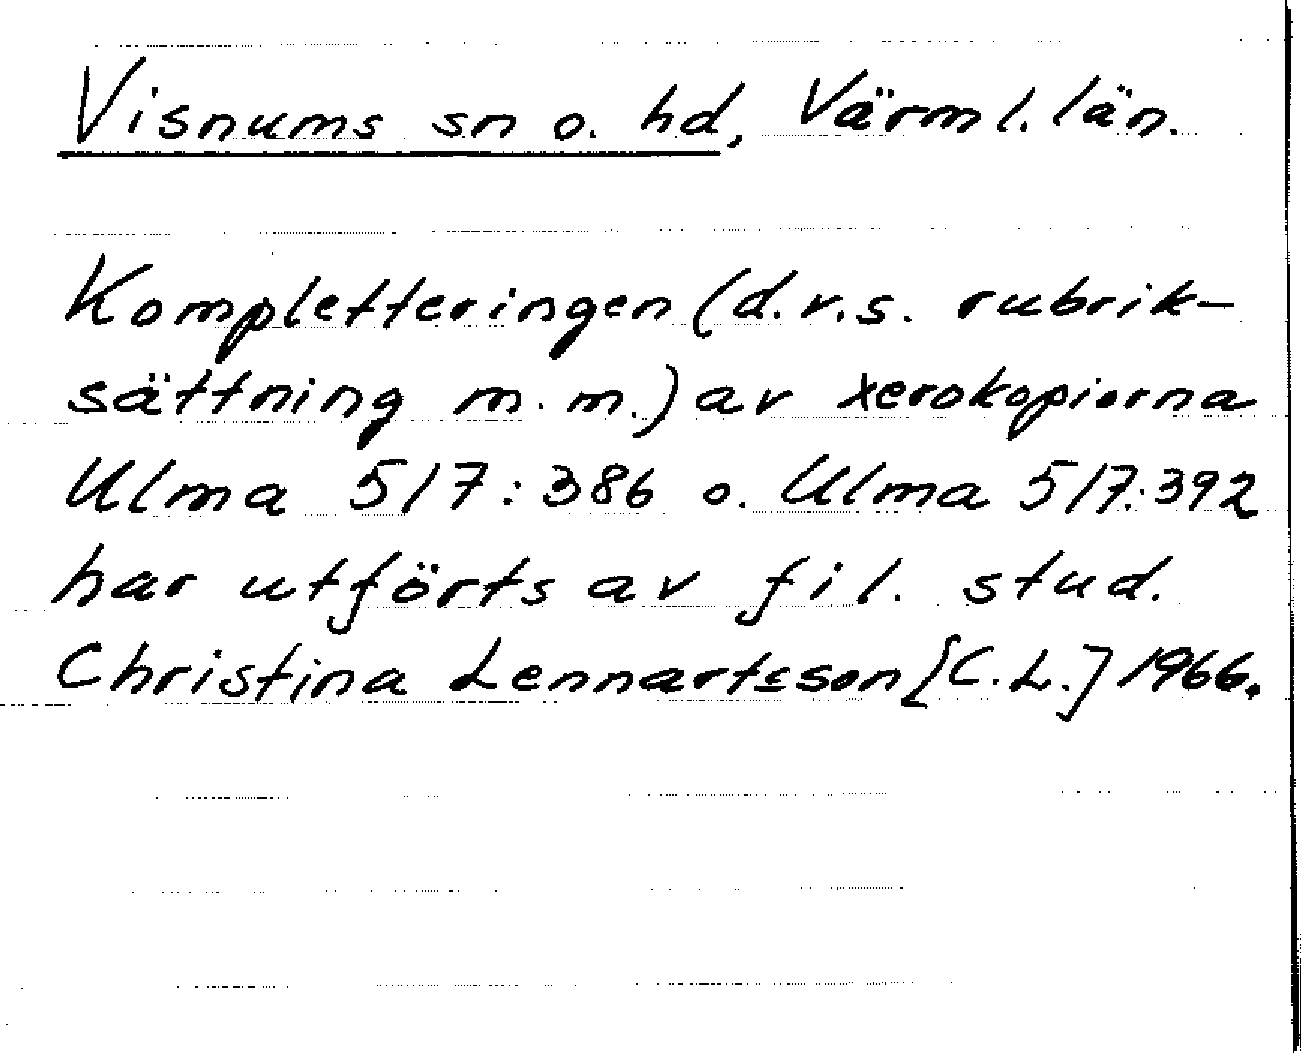 Visnums sn o. hd, Värml. län.
Kompletteringen (d.v.s. rubrik-
sättning m.m.) av xerokopiorna
Ulma 517:386 o. Ulma 517:392
har utförts av fil. stud.
Christina Lennartsson [C.L.] 1966.